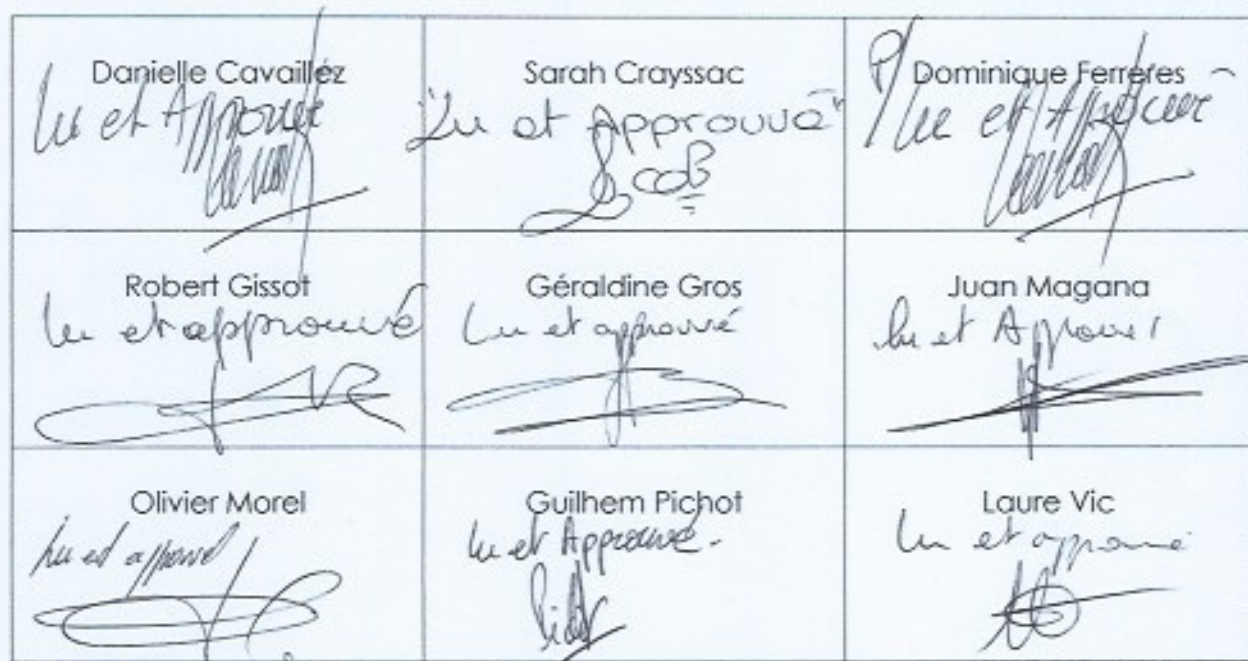 Danielle Cavaillez
Lu et Approuvé
Sarah Crayssac
"Lu et Approuvé"
Dominique Ferreres
P/ Lu et Approuvé
Robert Gissot
Lu et approuvé
Géraldine Gros
Lu et approuvé
Juan Magana
lu et Approuvé
Olivier Morel
Lu et approuvé
Guilhem Pichot
Lu et Approuvé.
Laure Vic
Lu et approuvé